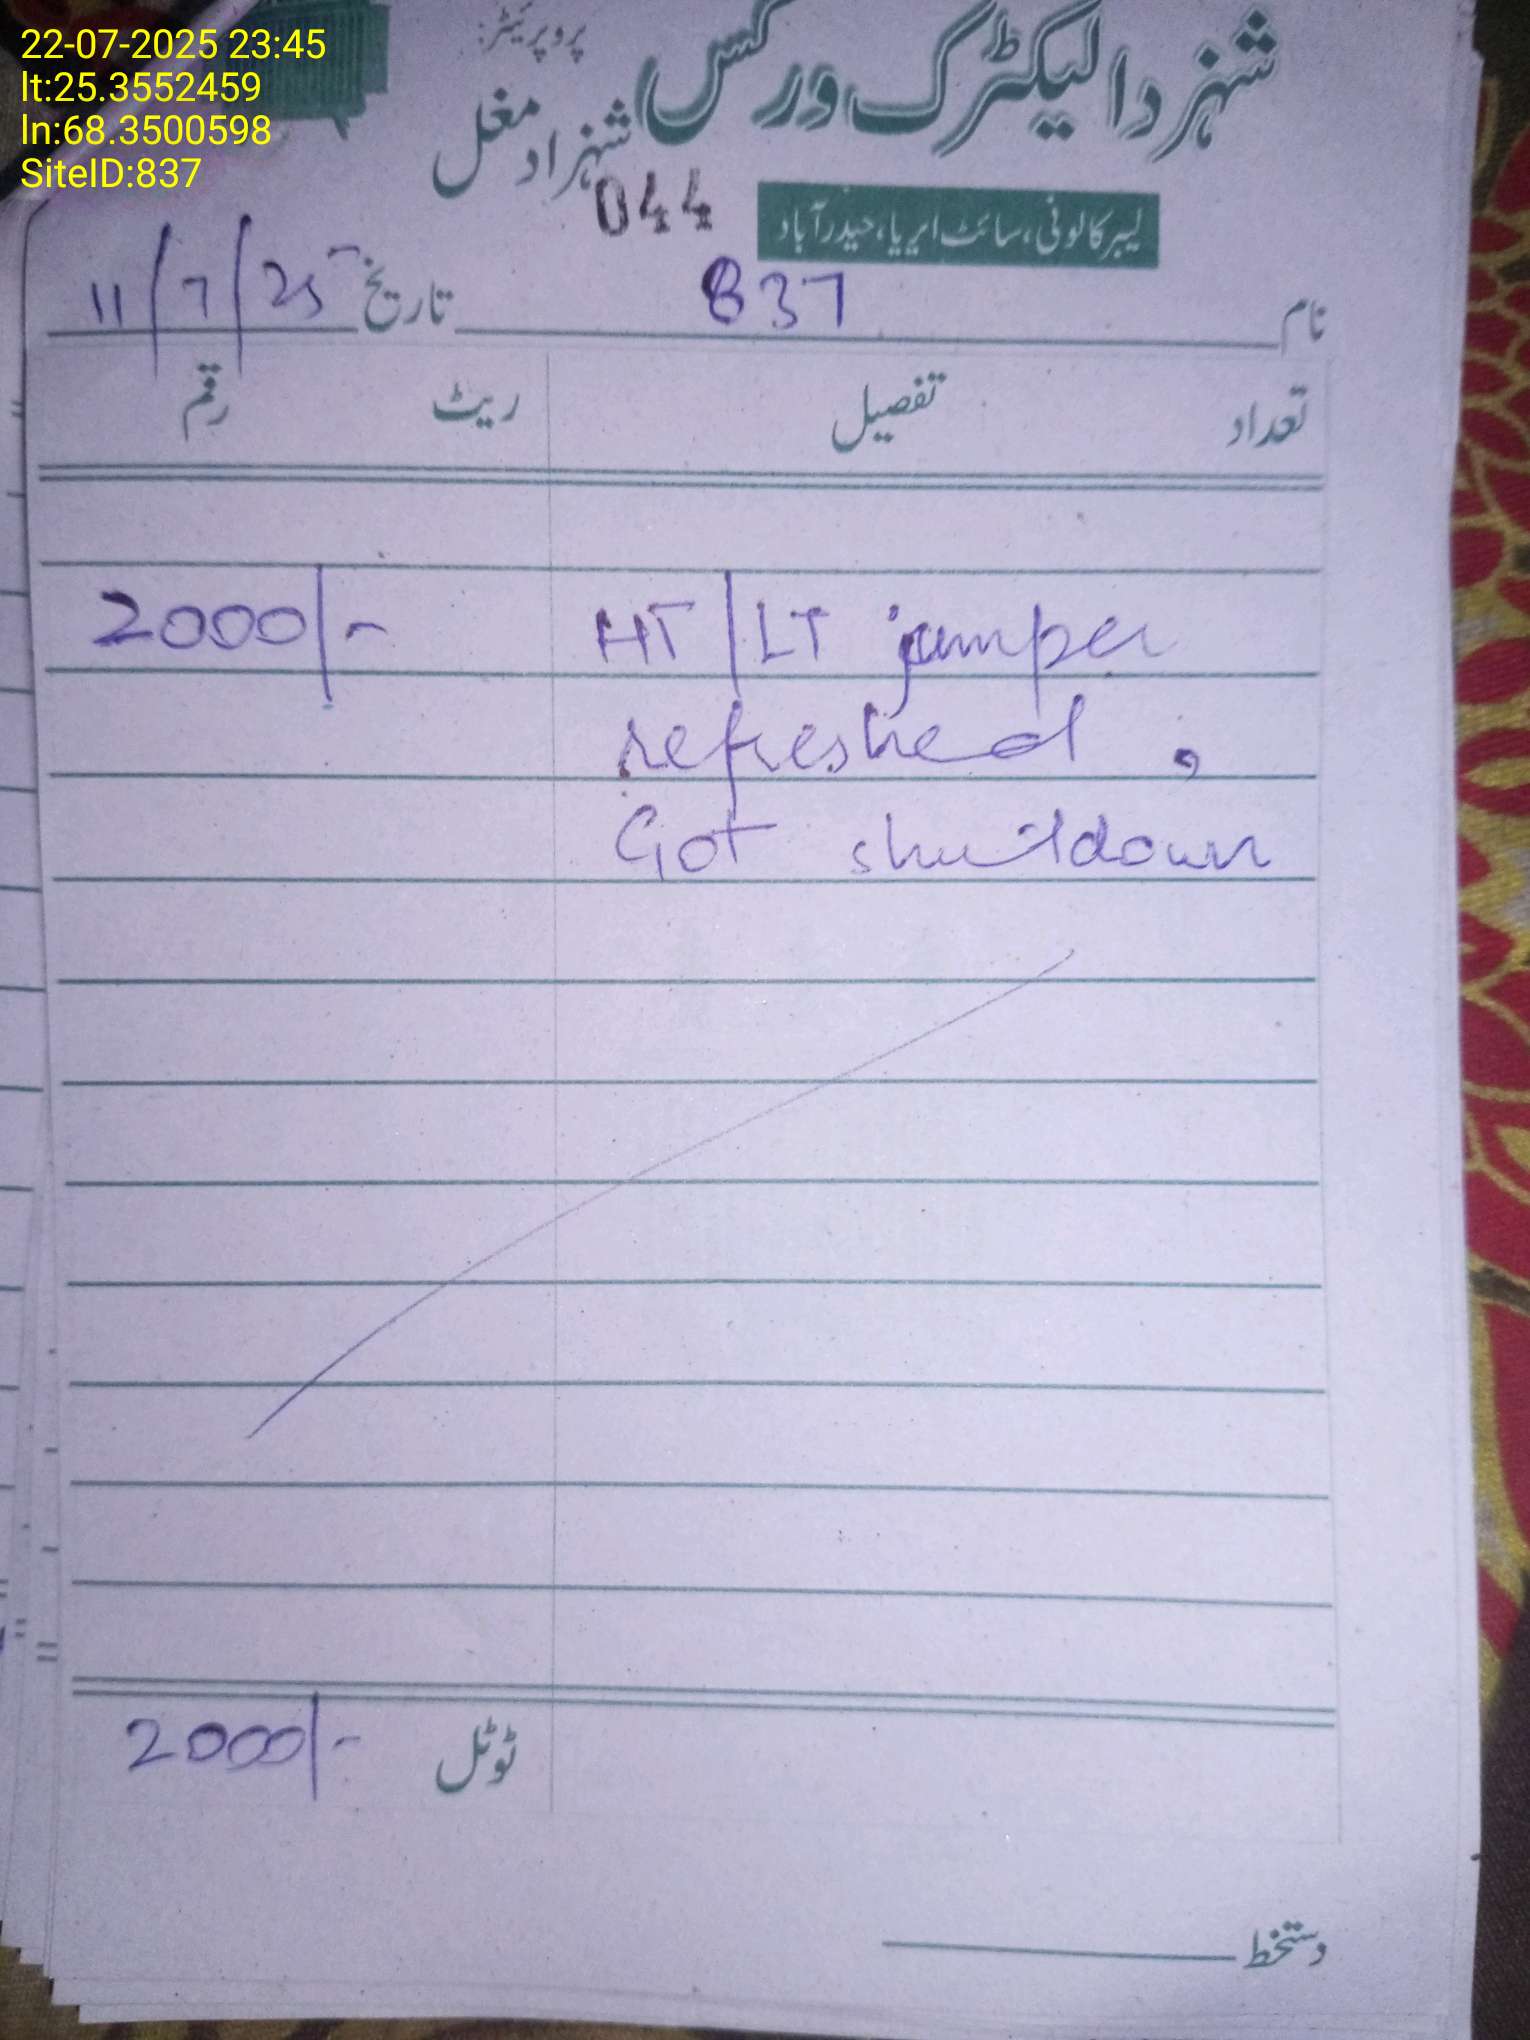 22-07-2025 23:45
lt:25.3552459
ln:68.3500598
SiteID:837
شہزاد الیکٹرک ورکس
پروپرائیٹر:
شہزاد مغل
044
لیبر کالونی، سائٹ ایریا، حیدرآباد
نام 837 تاریخ 11/7/25
تعداد تفصیل ریٹ رقم
HT/LT jumper 2000/-
refreshed,
Got shutdown
ٹوٹل 2000/-
دستخط